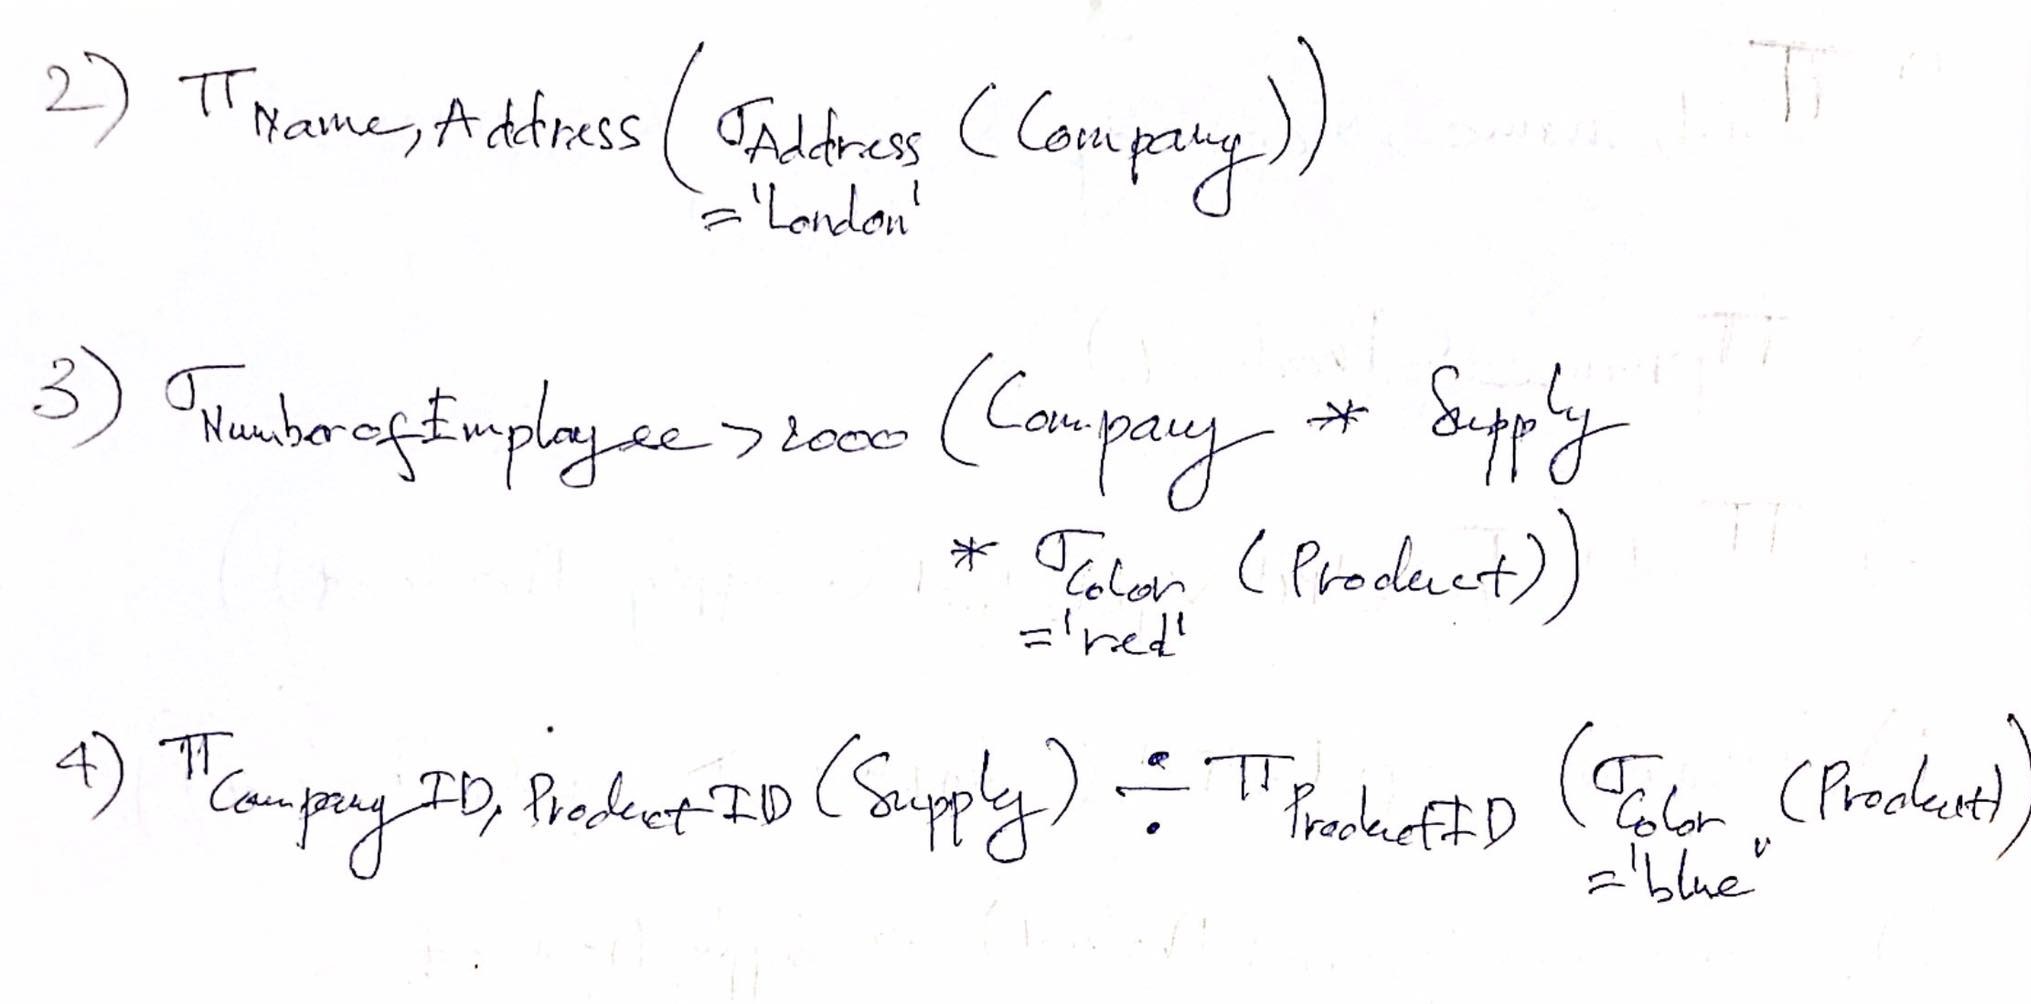 2) π Name, Address (σ Address = 'London' (Company))
3) σ NumberofEmployee > 2000 (Company * Supply
* σ Color = 'red' (Product))
4) π CompanyID, ProductID (Supply) ÷ π ProductID (σ Color = 'blue" (Product)